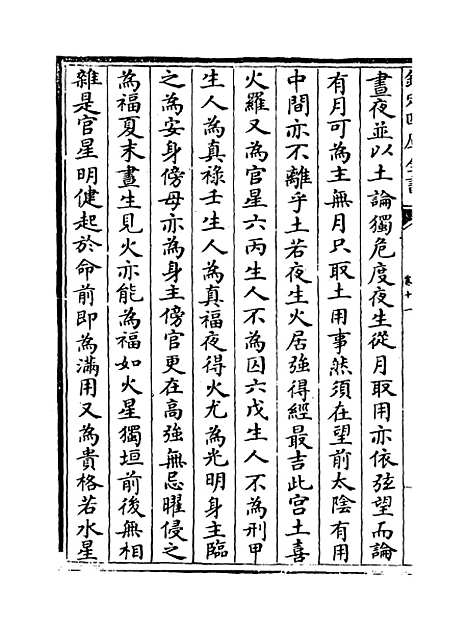 晝夜並以土論獨危度夜生從月取用亦依弦望而論
有月可為主無月只取土用事然須在望前太陰有用
中間亦不離乎土若夜生火居強得經最吉此宮土喜
火羅又為官星六丙生人不為囚六戊生人不為刑甲
生人為真祿壬生人為真福夜得火尤為光明身主臨
之為安身傍母亦為身主傍官更在高強無忌曜侵之
為福夏末晝生見火亦能為福如火星獨垣前後無相
雜是官星明健起於命前即為滿用又為貴格若水星